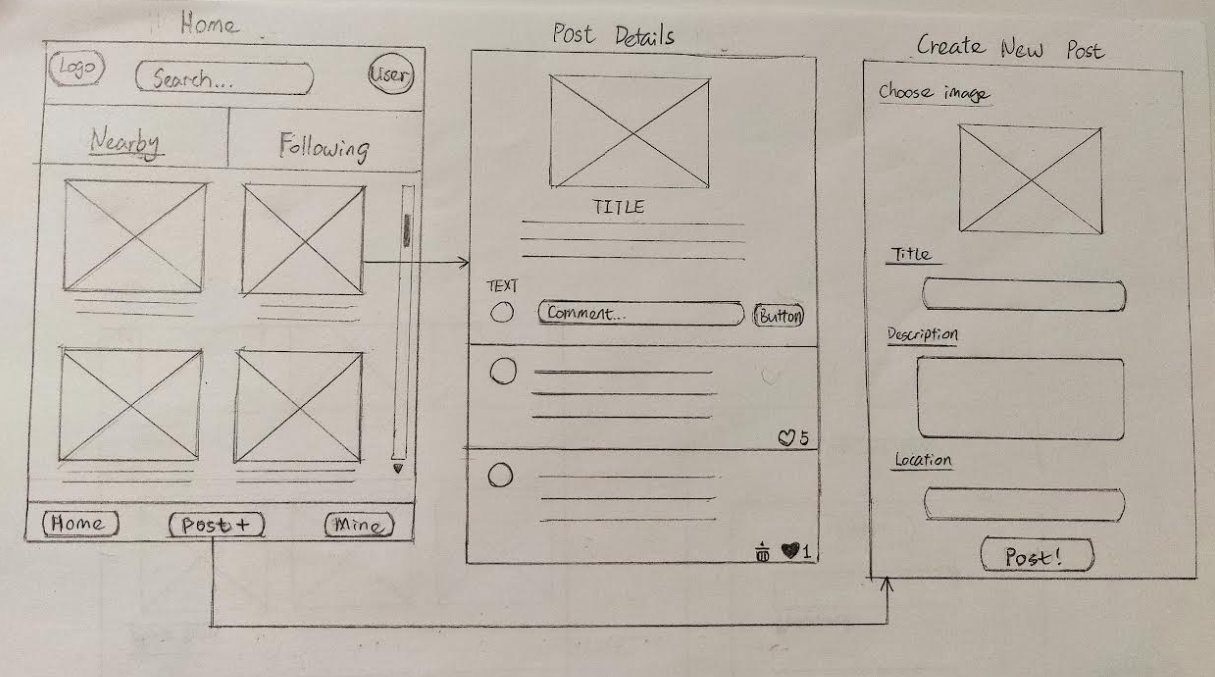 Home
Logo
Search...
User
Nearby
Following
Home
Post+
Mine
Post Details
TITLE
TEXT
Comment...
Button
5
1
Create New Post
Choose image
Title
Description
Location
Post!